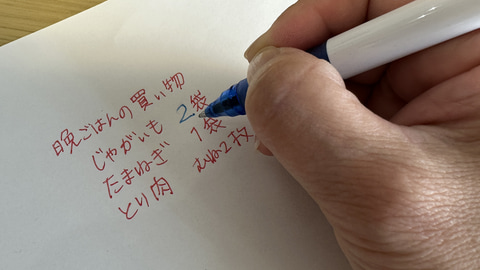 晩ごはんの買い物
じゃがいも 2袋
たまねぎ 1袋
とり肉 むね2枚